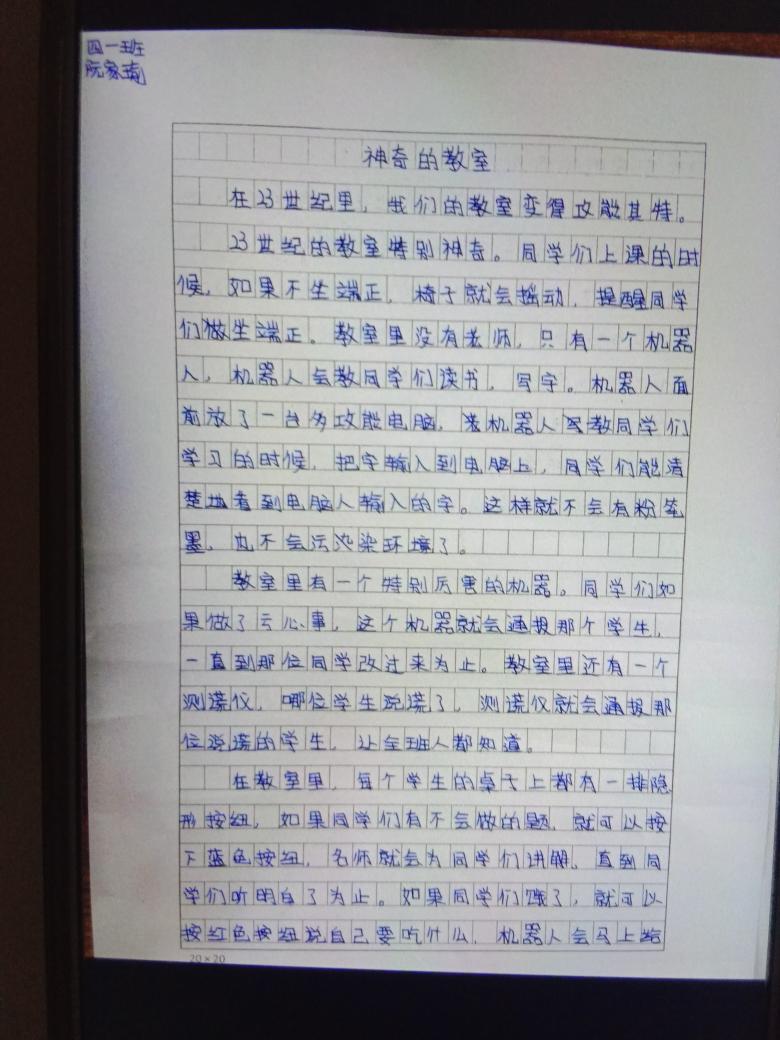 四一班
阮家琦
神奇的教室
在23世纪里，我们的教室变得攻能其特。
23世纪的教室特别神奇。同学们上课的时
候，如果不坐端正，椅子就会摇动，提醒同学
们做坐端正。教室里没有老师，只有一个机器
人，机器人会教同学们读书，写字。机器人面
前放了一台多攻能电脑，当机器人写教同学们
学习的时候，把字输入到电脑上，同学们能清
楚地看到电脑人输入的字。这样就不会有粉笔
墨，也不会污池染环境了。
教室里有一个特别厉害的机器。同学们如
果做了亏心事，这个机器就会通报那个学生，
一直到那位同学改过来为止。教室里还有一个
测谎仪，哪位学生说谎了，测谎仪就会通报那
位说谎的学生，让全班人都知道。
在教室里，每个学生的桌子上都有一排隐
形按纽，如果同学们有不会做的题，就可以按
下蓝色按纽，名师就会为同学们讲解，直到同
学们听明白了为止。如果同学们饿了，就可以
按红色按纽说自己要吃什么，机器人会马上给
20×20